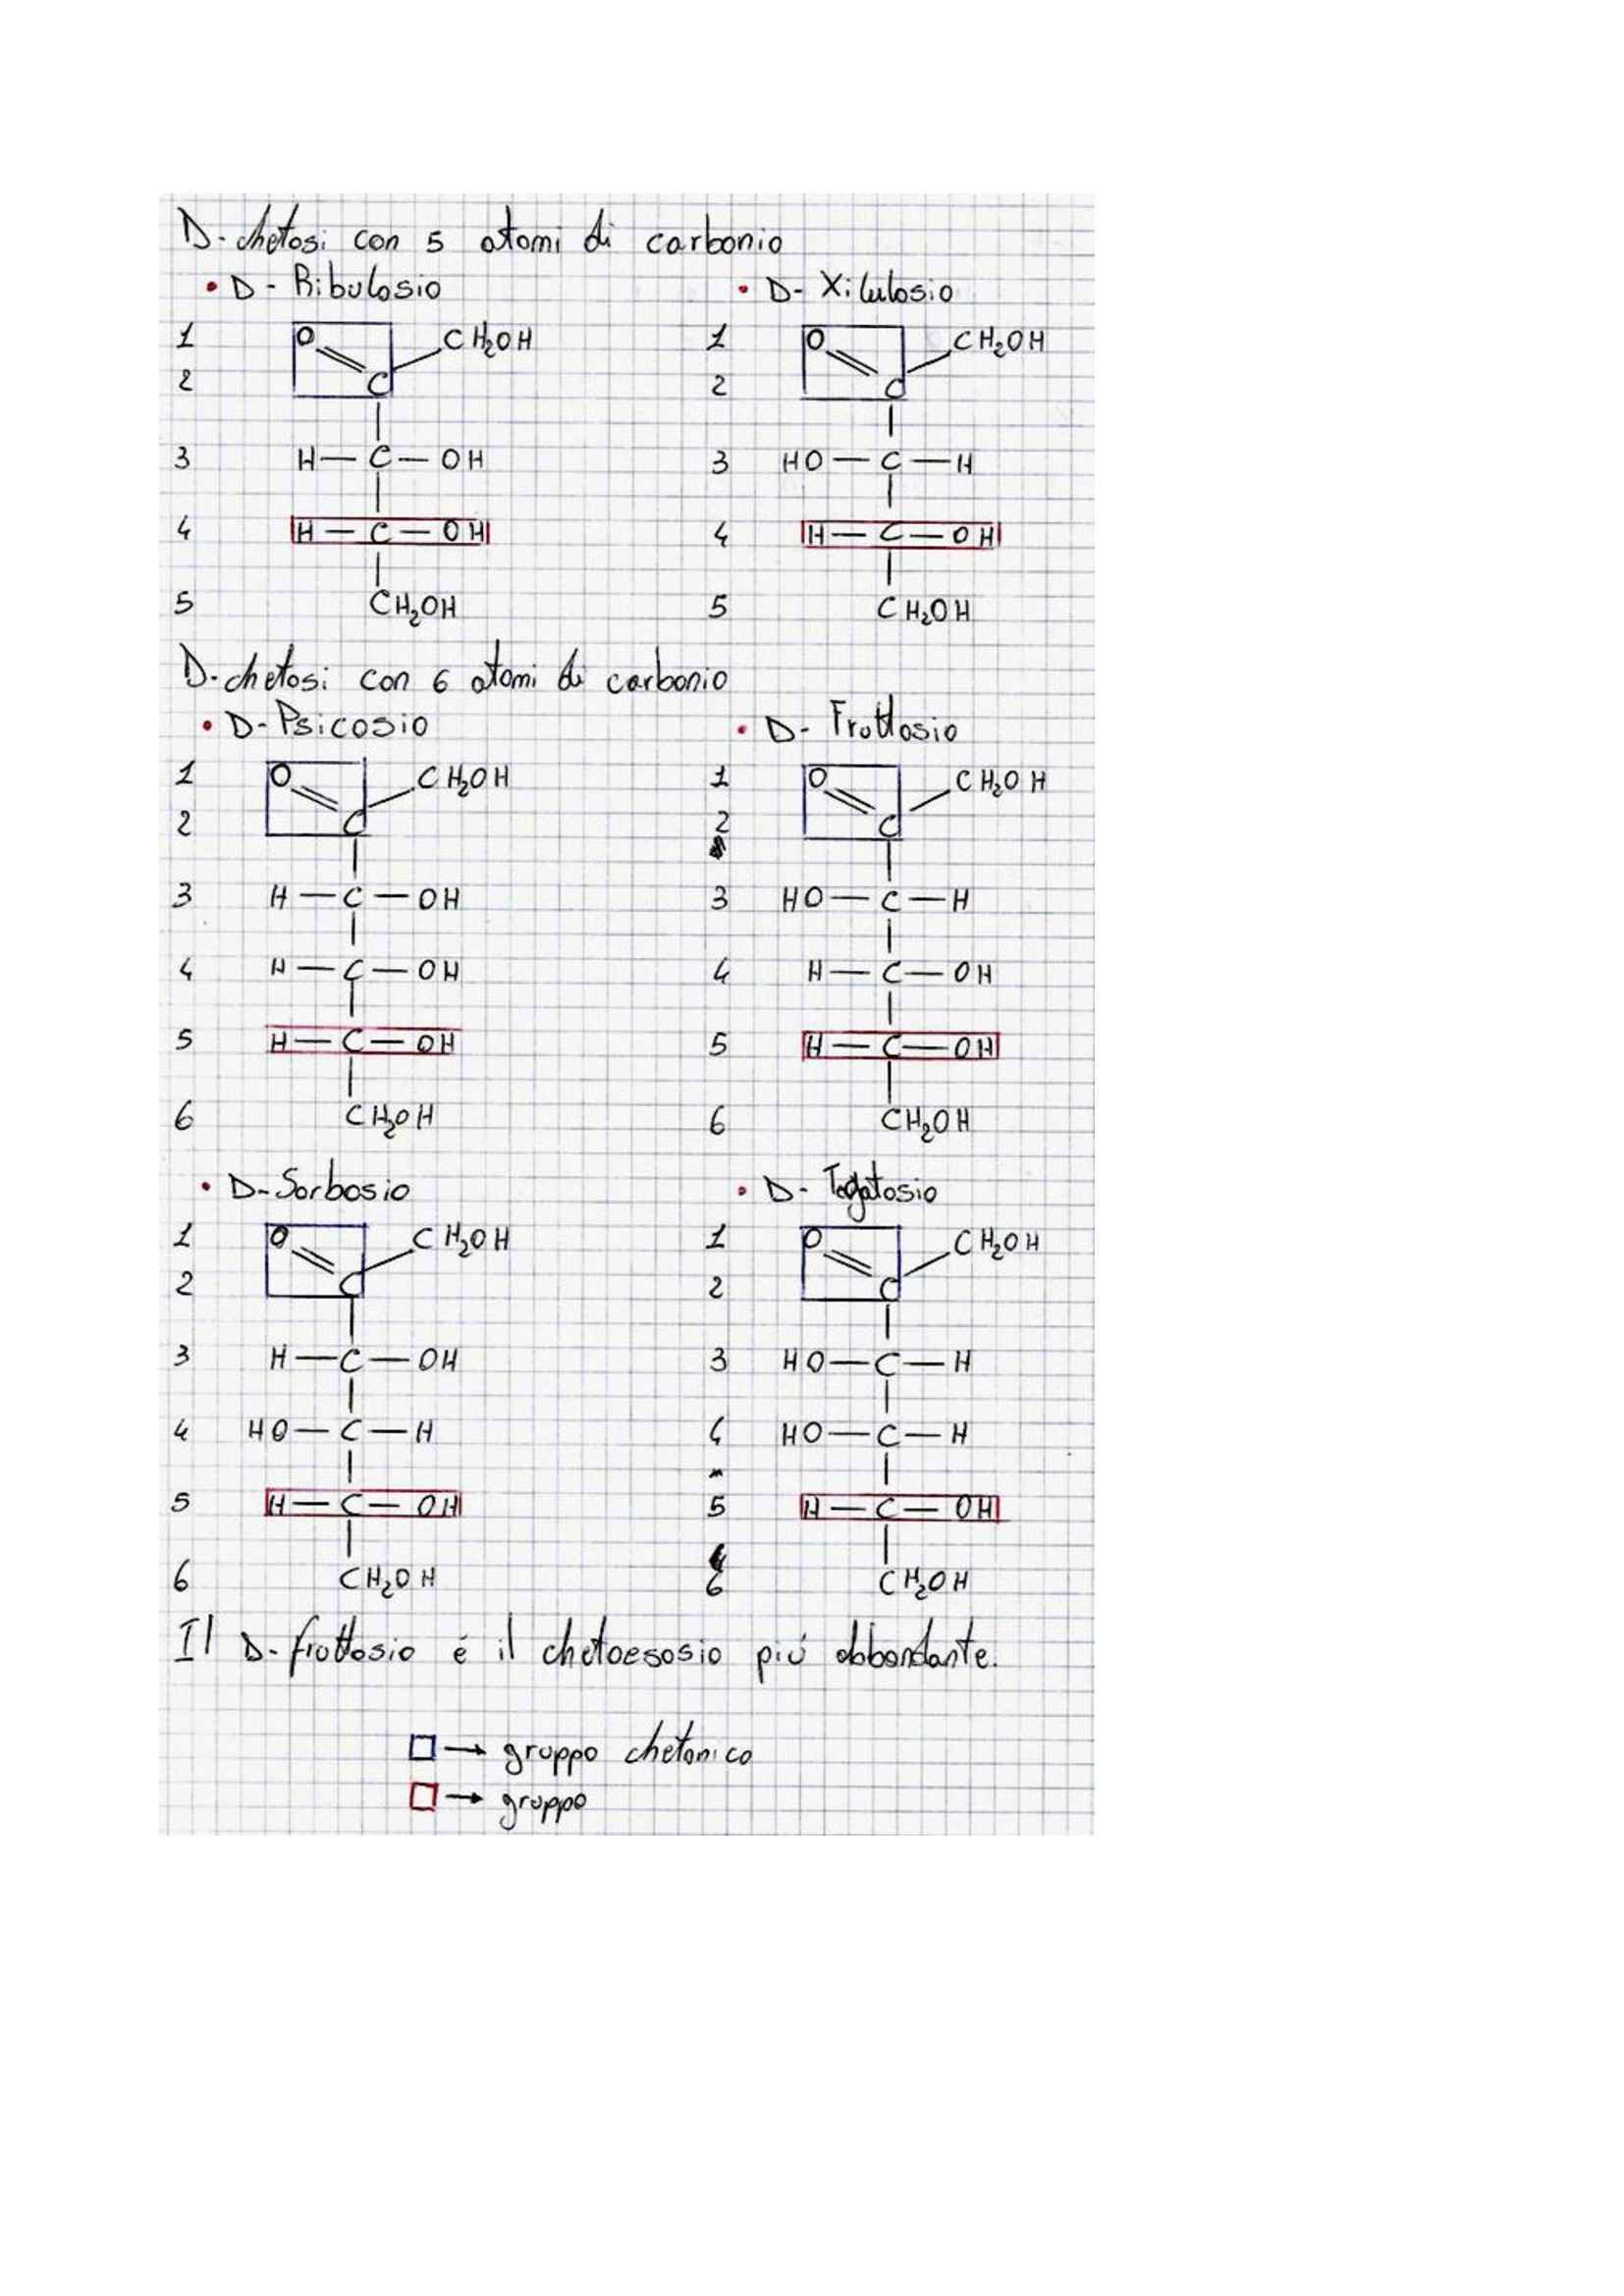 D-chetosi con 5 atomi di carbonio
• D-Ribulosio • D-Xilulosio
1 O CH₂OH 1 O CH₂OH
2 C 2 C
3 H—C—OH 3 HO—C—H
4 H—C—OH 4 H—C—OH
5 CH₂OH 5 CH₂OH
D-chetosi con 6 atomi di carbonio
• D-Psicosio • D-Fruttosio
1 O CH₂OH 1 O CH₂OH
2 C 2 C
3 H—C—OH 3 HO—C—H
4 H—C—OH 4 H—C—OH
5 H—C—OH 5 H—C—OH
6 CH₂OH 6 CH₂OH
• D-Sorbosio • D-Tagatosio
1 O CH₂OH 1 O CH₂OH
2 C 2 C
3 H—C—OH 3 HO—C—H
4 HO—C—H 4 HO—C—H
5 H—C—OH 5 H—C—OH
6 CH₂OH 6 CH₂OH
Il D-fruttosio é il chetoesosio piú abbondante.
□ → gruppo chetonico
□ → gruppo